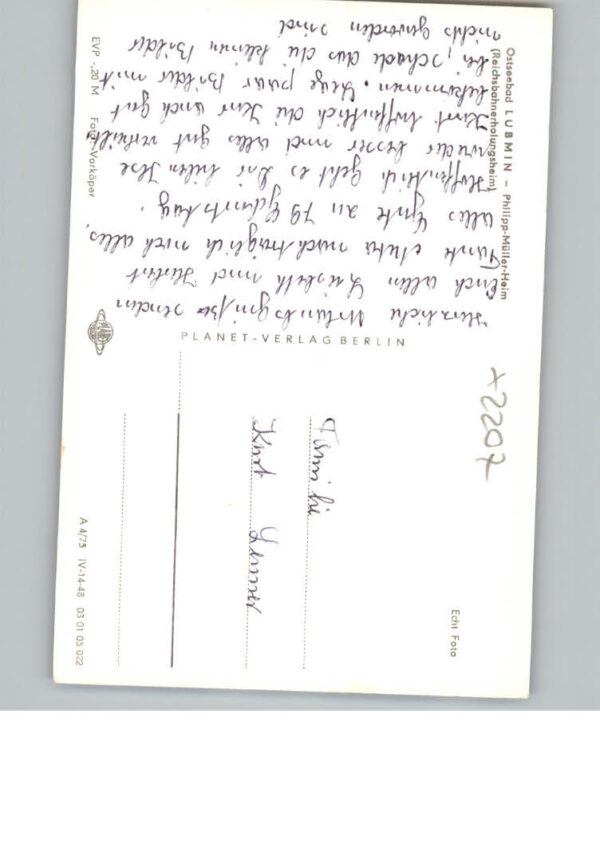 Ostseebad LUBMIN – Philipp-Müller-Heim
(Reichsbahnerholungsheim)
EVP -,20 M Foto: Vorköper
Herzliche Urlaubsgrüße senden
Euch allen Lisbeth und Herbert
Tante nachträglich noch alles,
alles Gute zu 79 Geburtstag.
Hoffentlich geht es bei Ilse
wieder besser und alles gut verheilt
Kurt hoffentlich die Kur auch gut
bekommen. Lege paar Bilder mit
bei, schade das die kleinen Bilder
nichts geworden sind
PLANET-VERLAG BERLIN
x2207
Familie
Kurt
Echt Foto
A 4/75 IV-14-48 03 01 05 022